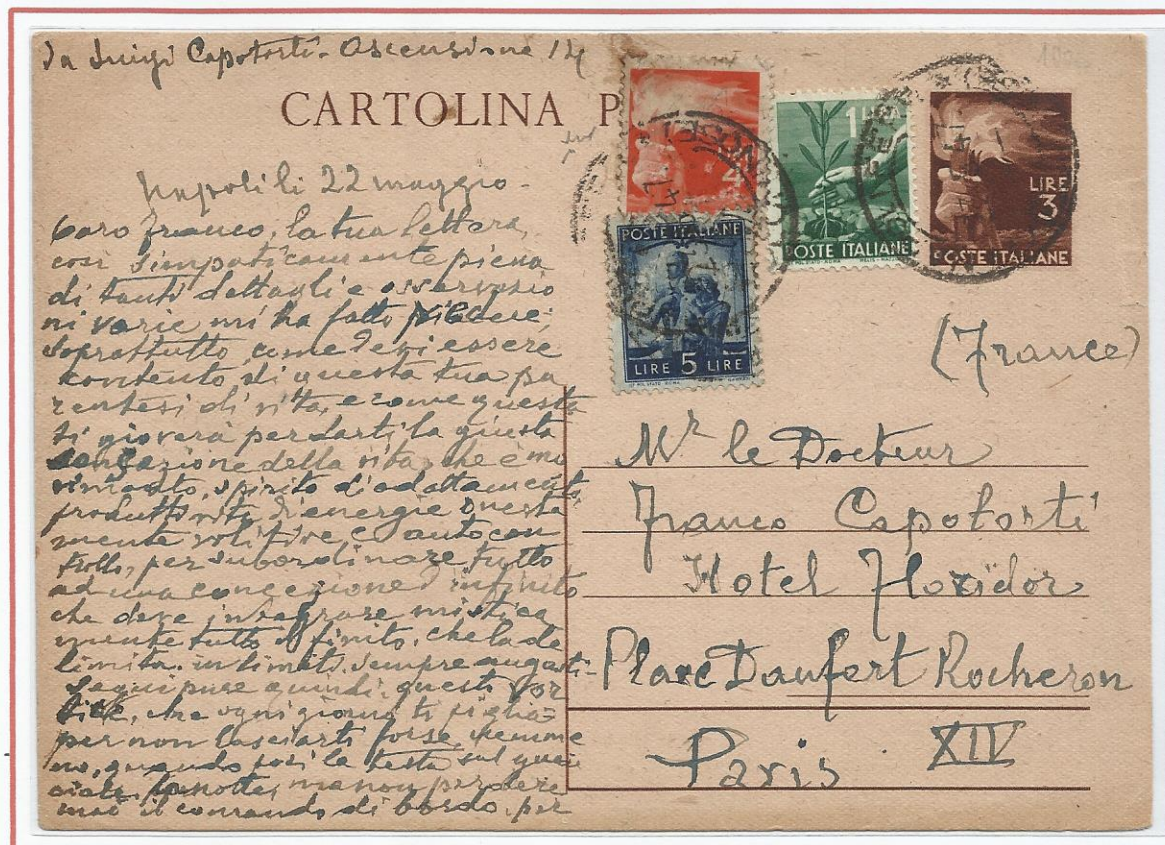 Da Luigi Capotorti - Ascensione 14
CARTOLINA P
4
1 LIRA
POSTE ITALIANE
LIRE
3
POSTE ITALIANE
POSTE ITALIANE
LIRE 5 LIRE
Napoli li 22 maggio -
Caro Franco, la tua lettera,
così simpaticamente piena
di tanti dettagli e osservazio
ni varie mi ha fatto piacere;
soprattutto, come devi essere
contento di questa tua pa
rentesi di vita, e come questa
ti gioverà per darti la giusta
sensazione della vita, che è mo
vimento, spirito di adattamento,
produttività di energie onesta
mente volitive e auto con
trollo, per subordinare tutto
ad una concezione d'infinito
che deve integrare mistica
mente tutto il finito, che la de
limita in limiti sempre angusti -
Segui pure quindi, questi vor
tici, che ogni giorno ti piglia
per non lasciarti forse nemme
no, quando posi la testa sul guan
ciale, la notte, ma non perdere
mai il comando di bordo, per
(France)
Mr le Docteur
Franco Capotorti
Hotel Floridor
Place Danfert Rocheron
Paris XIV